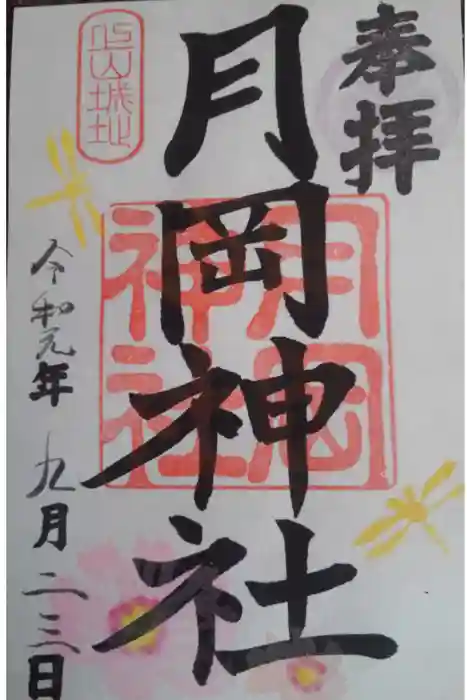 奉拝
月岡神社
月岡神社
山城址
令和元年九月二三日